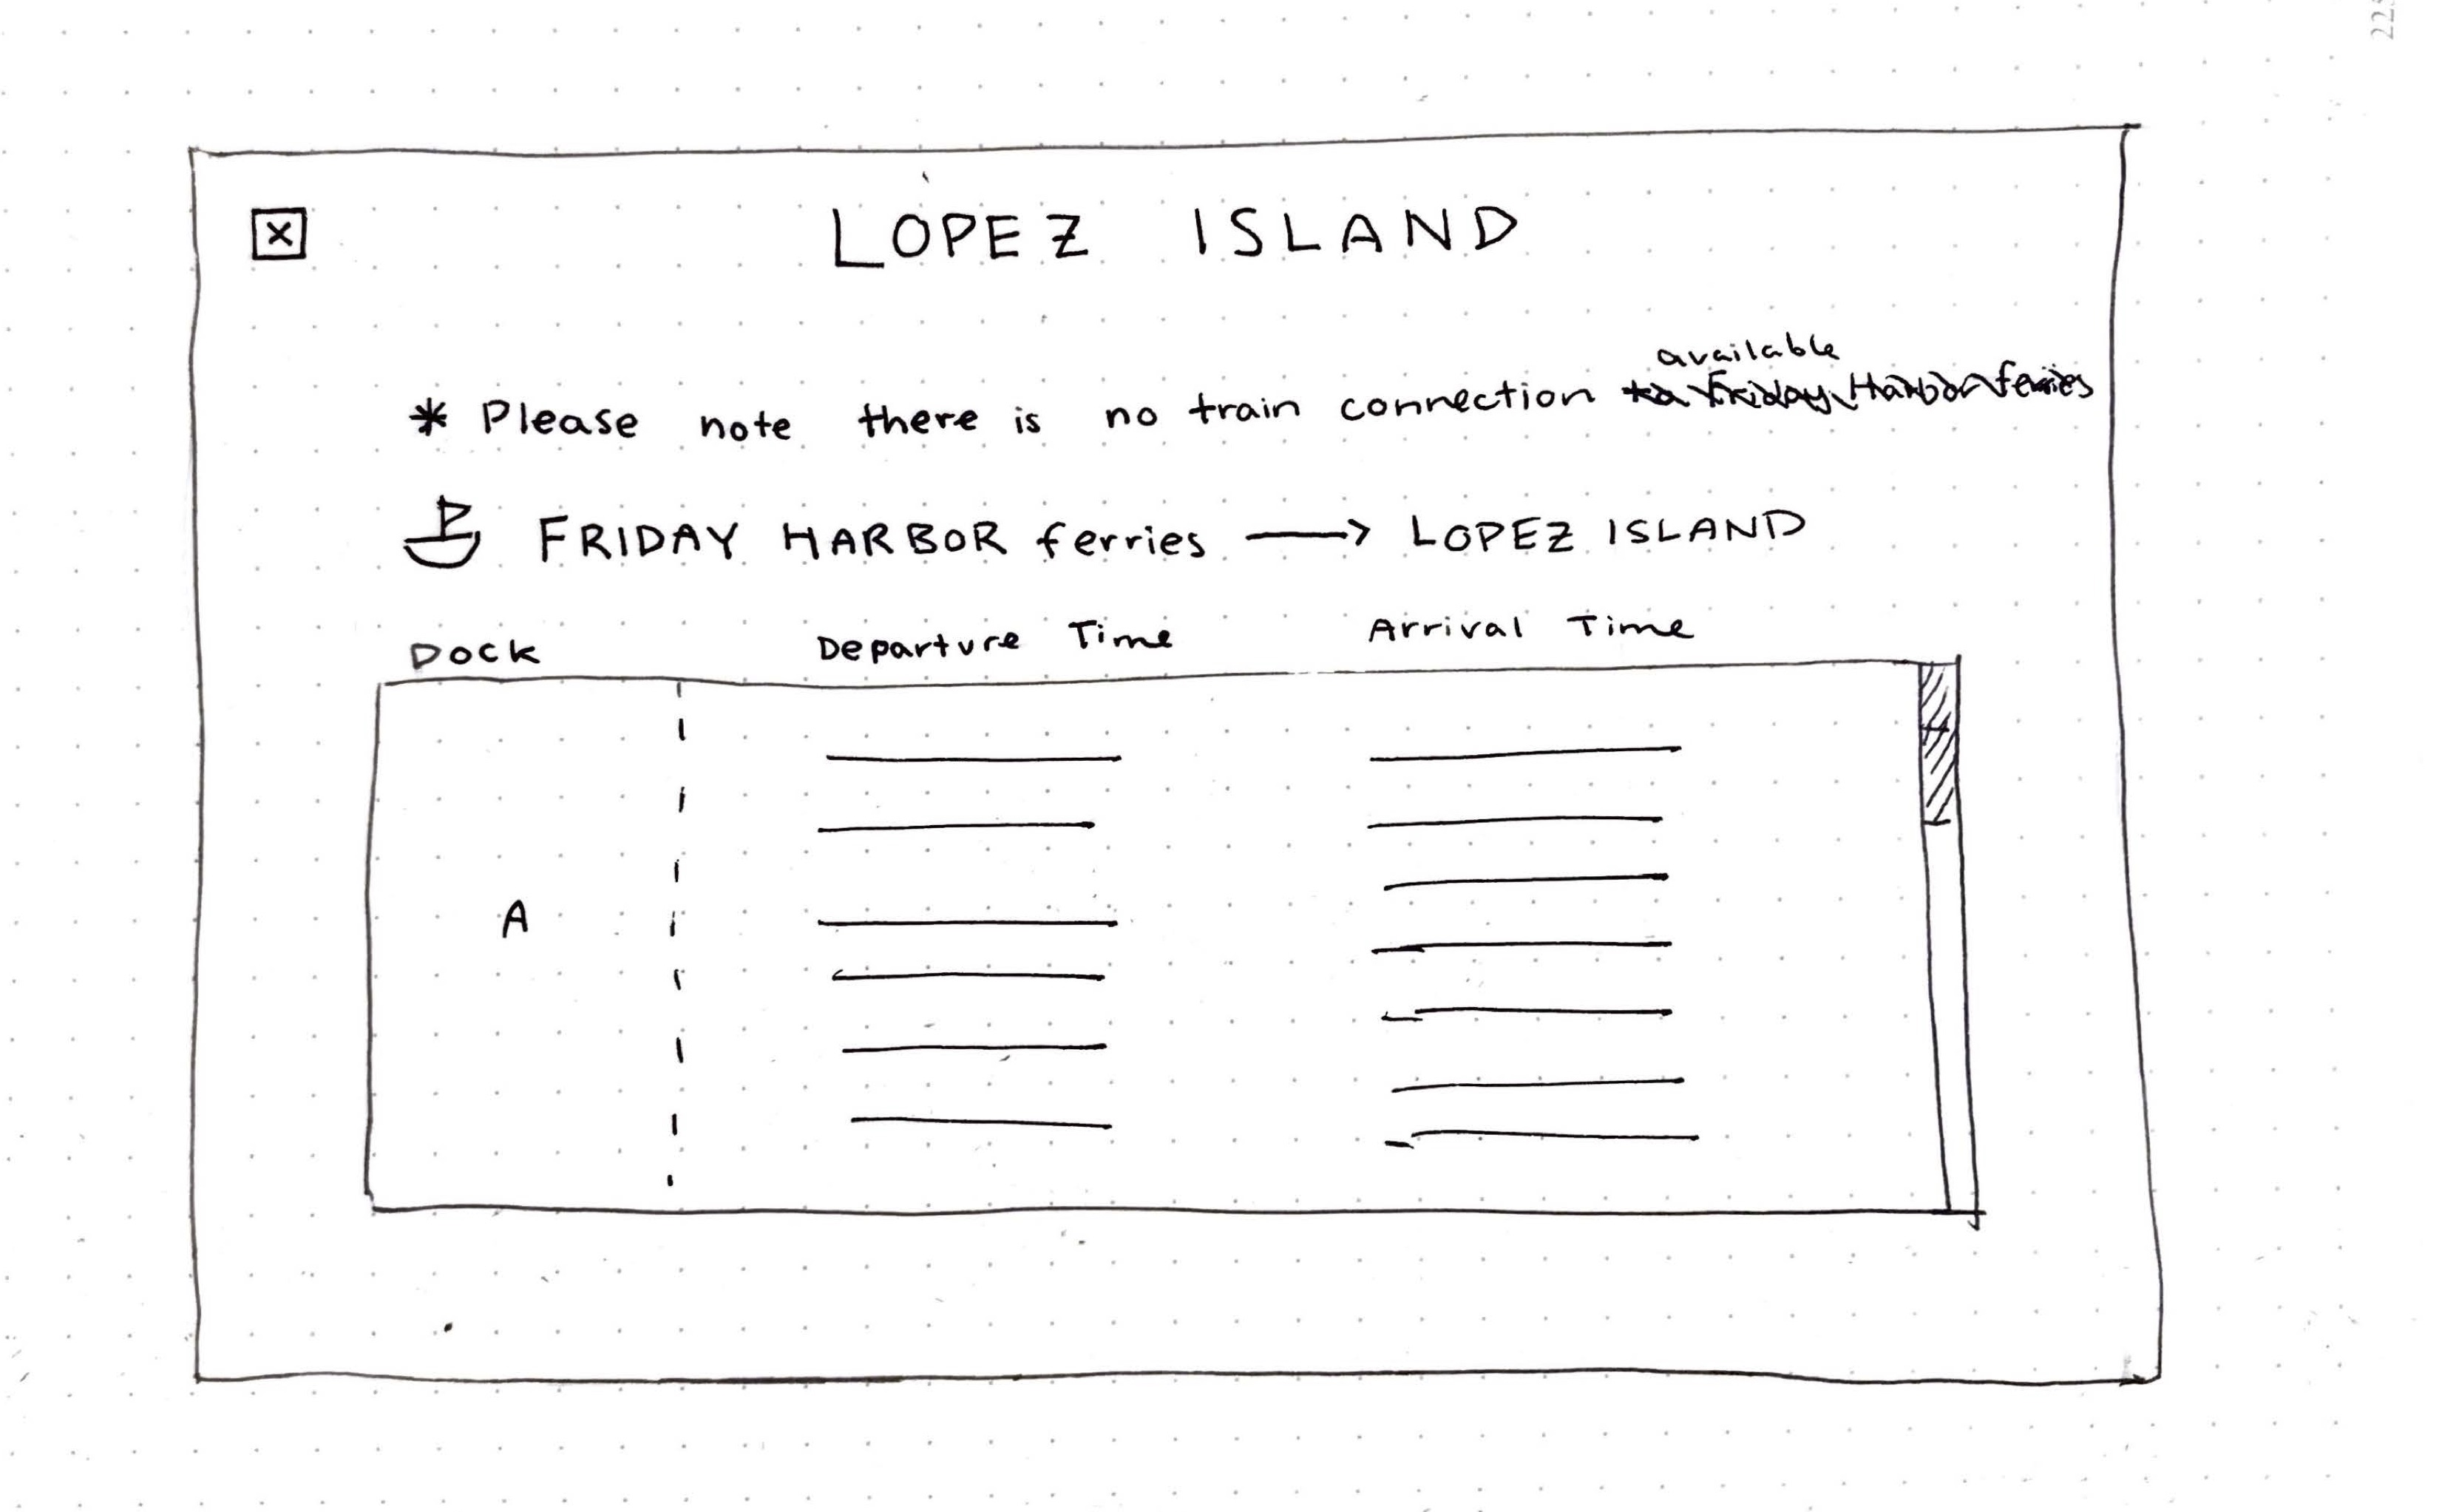 225
x
LOPEZ ISLAND
available
* Please note there is no train connection to Friday Harbor ferries
FRIDAY HARBOR ferries → LOPEZ ISLAND
Dock Departure Time Arrival Time
A